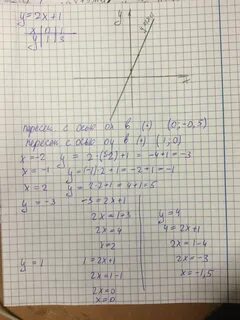 y=2x+1
x | 0 | 1
y | 1 | 3
y
y=2x+1
x
пересеч с осью ox в (•) (0;-0,5)
пересеч с осью oy в (•) (1;0)
x=-2 y = 2·(-2)+1 = -4+1=-3
x=-1 y=(-1)·2+1=-2+1=-1
x=2 y=2·2+1=4+1=5
y=-3 -3=2x+1
2x=1+3
2x=4
x=2
y=1 1=2x+1
2x=1-1
2x=0
x=0
y=4
4=2x+1
2x=1-4
2x=-3
x=-1,5